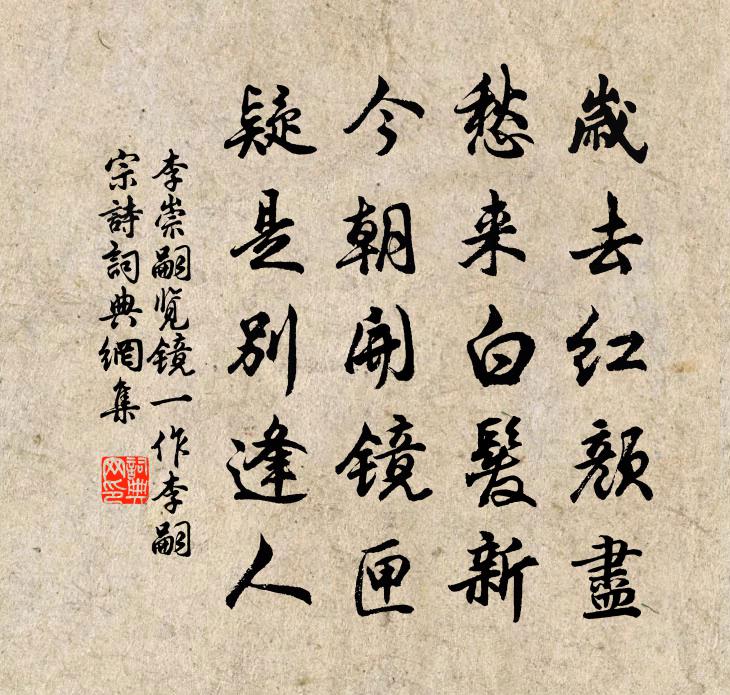 歲去红顏盡
愁来白髮新
今朝開鏡匣
疑是別逢人
李崇嗣览鏡一作李嗣
宗詩詞典網集
詞典
网印